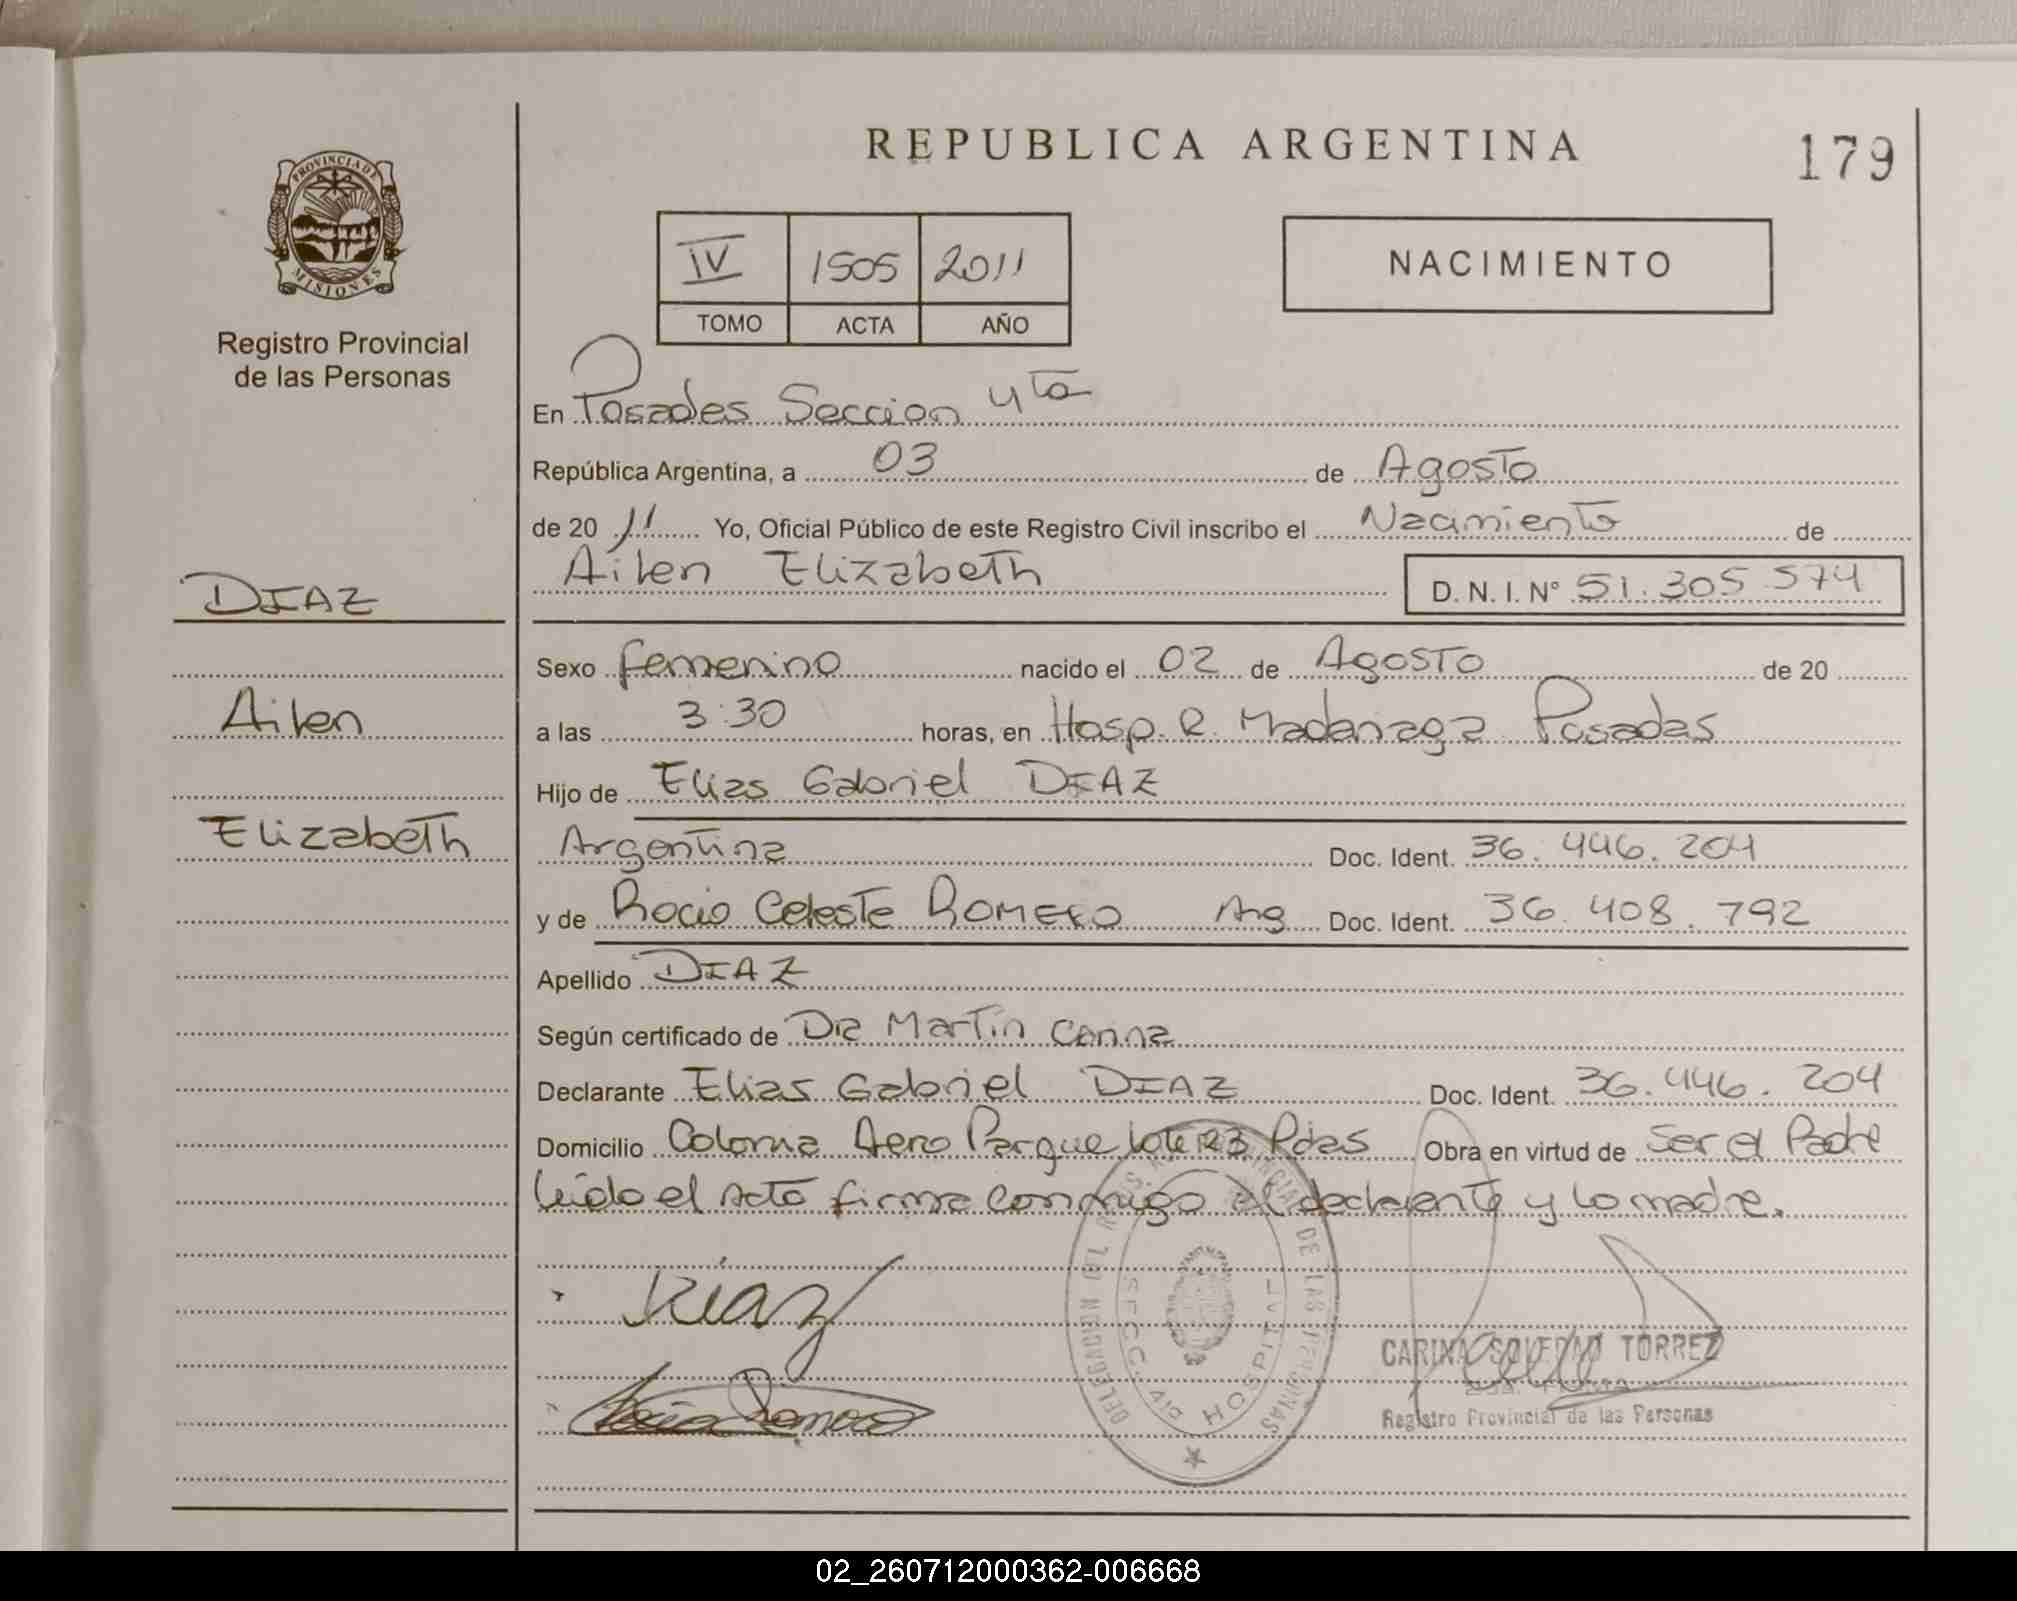 REPUBLICA ARGENTINA
179
PROVINCIA DE
MISIONES
Registro Provincial
de las Personas
IV 1505 2011
TOMO ACTA AÑO
NACIMIENTO
En Posadas Seccion 4ta
República Argentina, a 03 de Agosto
de 20 11 Yo, Oficial Público de este Registro Civil inscribo el Nacimiento de
Ailen Elizabeth D. N. I. N° 51.305.574
DIAZ
Ailen
Elizabeth
Sexo femenino nacido el 02 de Agosto de 20
a las 3:30 horas, en Hosp. R. Madariaga Posadas
Hijo de Elias Gabriel DIAZ
Argentina Doc. Ident. 36.446.204
y de Rocio Celeste ROMERO Arg Doc. Ident. 36.408.792
Apellido DIAZ
Según certificado de Dra Martin
Declarante Elias Gabriel DIAZ Doc. Ident. 36.446.204
Domicilio Colonia Aero Parque lote 23 Pdas Obra en virtud de ser el Padre
leido el acta firma conmigo el declarante y la madre.
Diaz
Rocio Romero
DELEGACION DEL REG. PROVINCIAL DE LAS PERSONAS
SECC. 4ta HOSPITAL
CARINA SOLEDAD TORREZ
Registro Provincial de las Personas
02_260712000362-006668